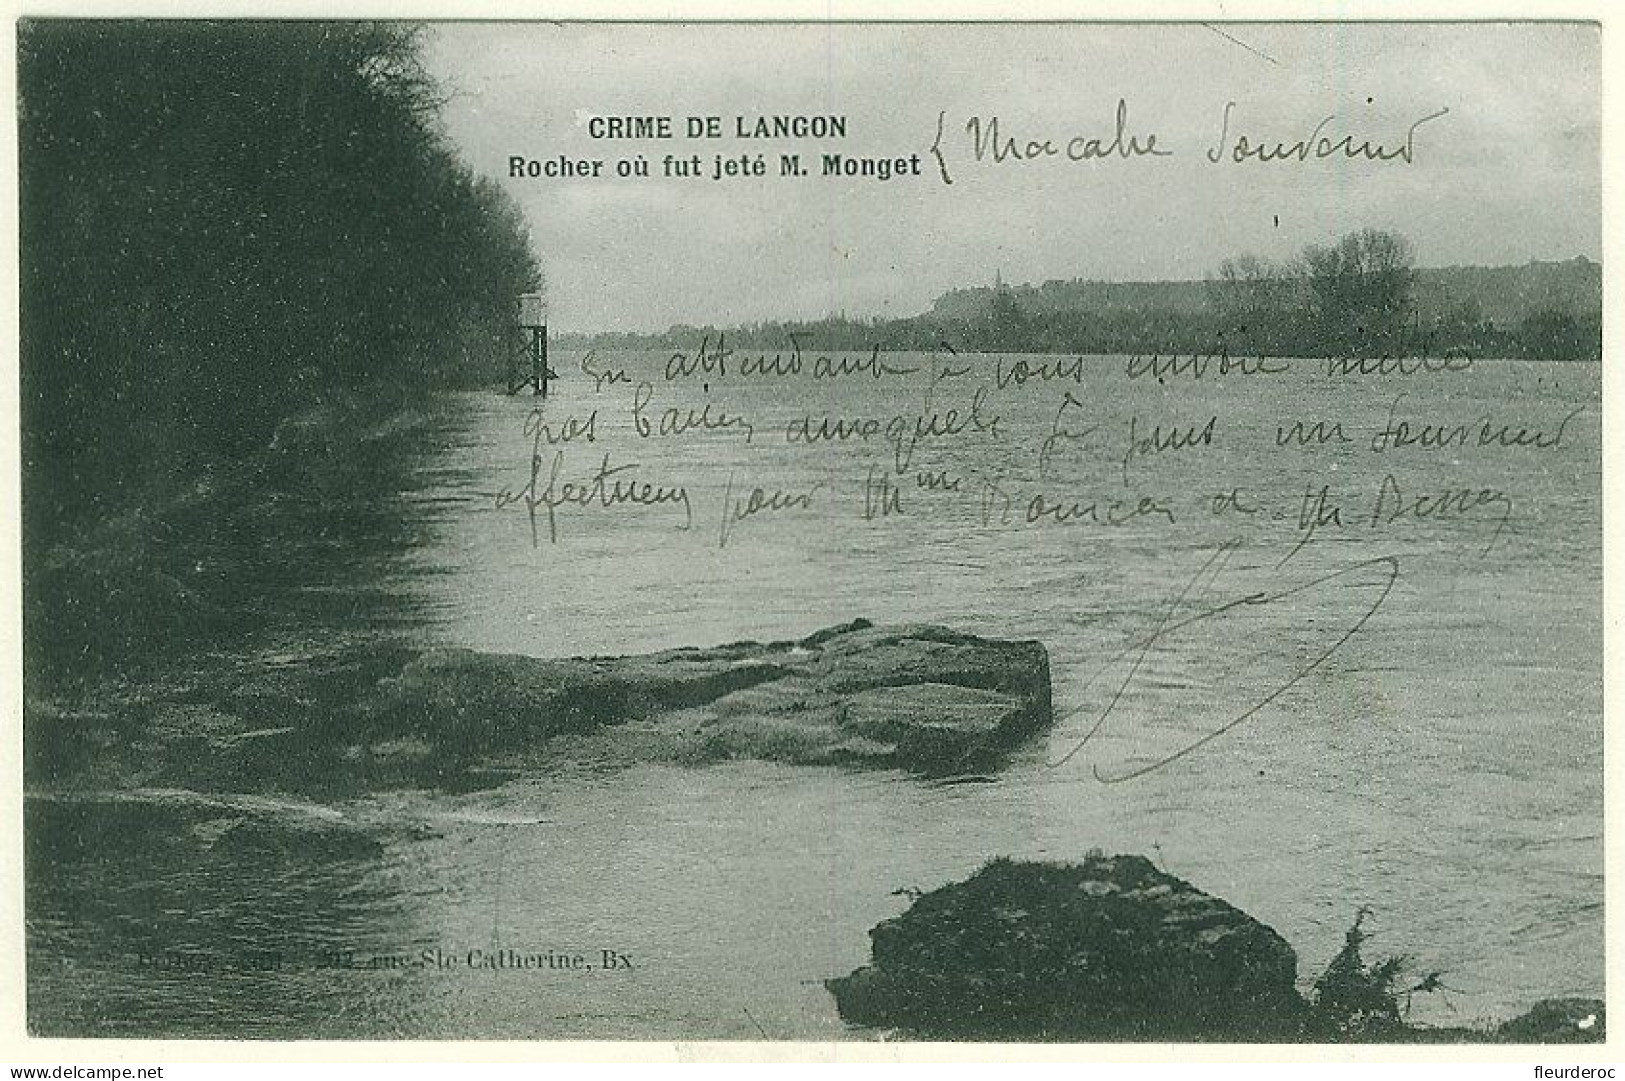 CRIME DE LANGON
Rocher où fut jeté M. Monget
{ Macabre Souvenir
En attendant je vous envoie mille
gros baisers auxquels je joins un souvenir
affectueux pour Mme et M
202, rue Ste Catherine, Bx
fleurderoc